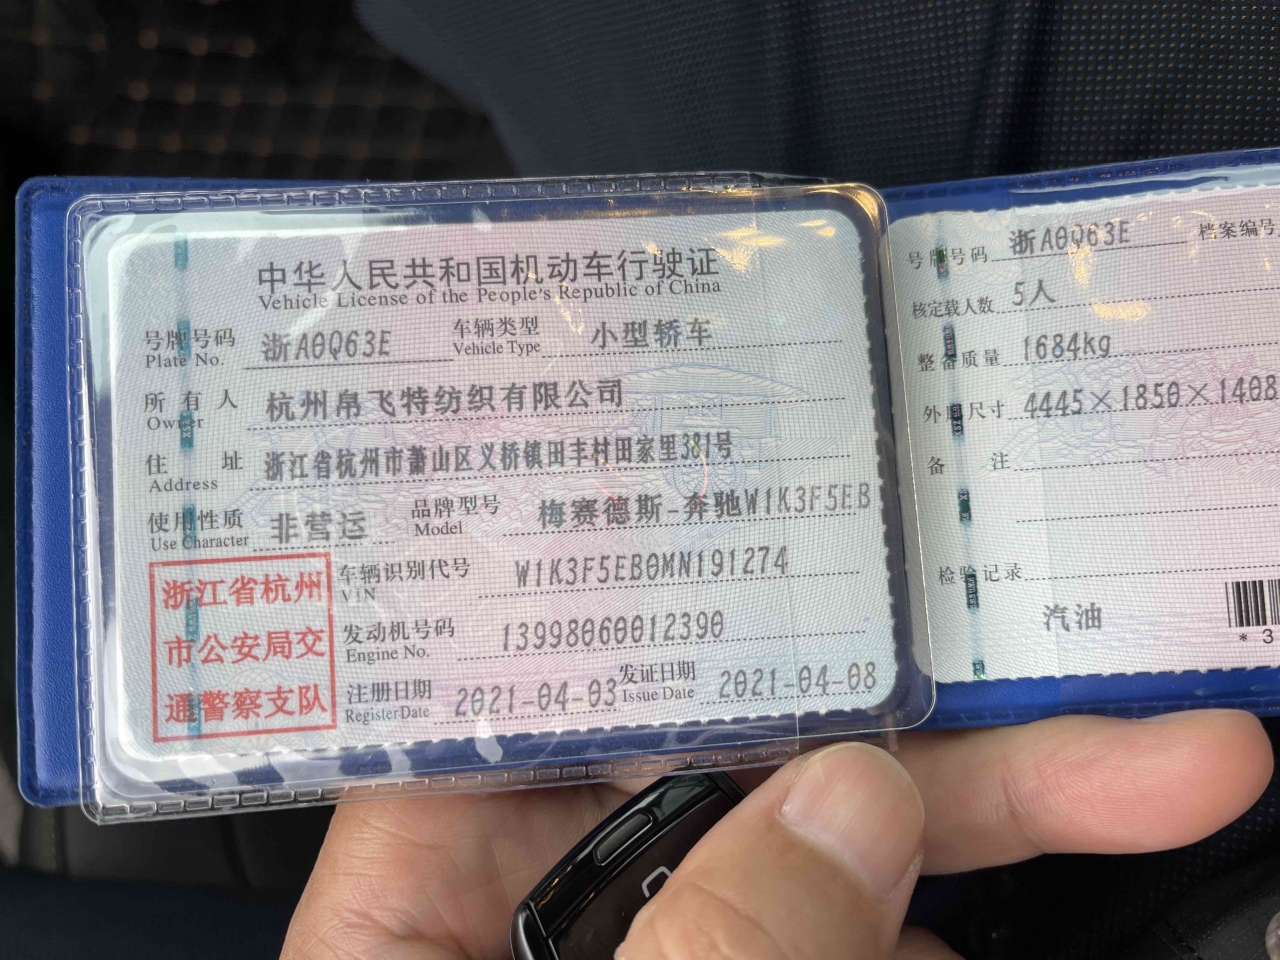 中华人民共和国机动车行驶证
Vehicle License of the People's Republic of China
号牌号码 浙A0Q63E 车辆类型 小型轿车
Plate No. Vehicle Type
所有人 杭州帛飞特纺织有限公司
Owner
住址 浙江省杭州市萧山区义桥镇田丰村田家里381号
Address
使用性质 非营运 品牌型号 梅赛德斯-奔驰W1K3F5EB
Use Character Model
浙江省杭州
市公安局交
通警察支队
车辆识别代号 W1K3F5EB0MN191274
VIN
发动机号码 13998060012390
Engine No.
注册日期 2021-04-03 发证日期 2021-04-08
Register Date Issue Date
号牌号码 浙A0Q63E 档案编号
核定载人数 5人
整备质量 1684kg
外廓尺寸 4445×1850×1408
备注
检验记录
汽油
*3